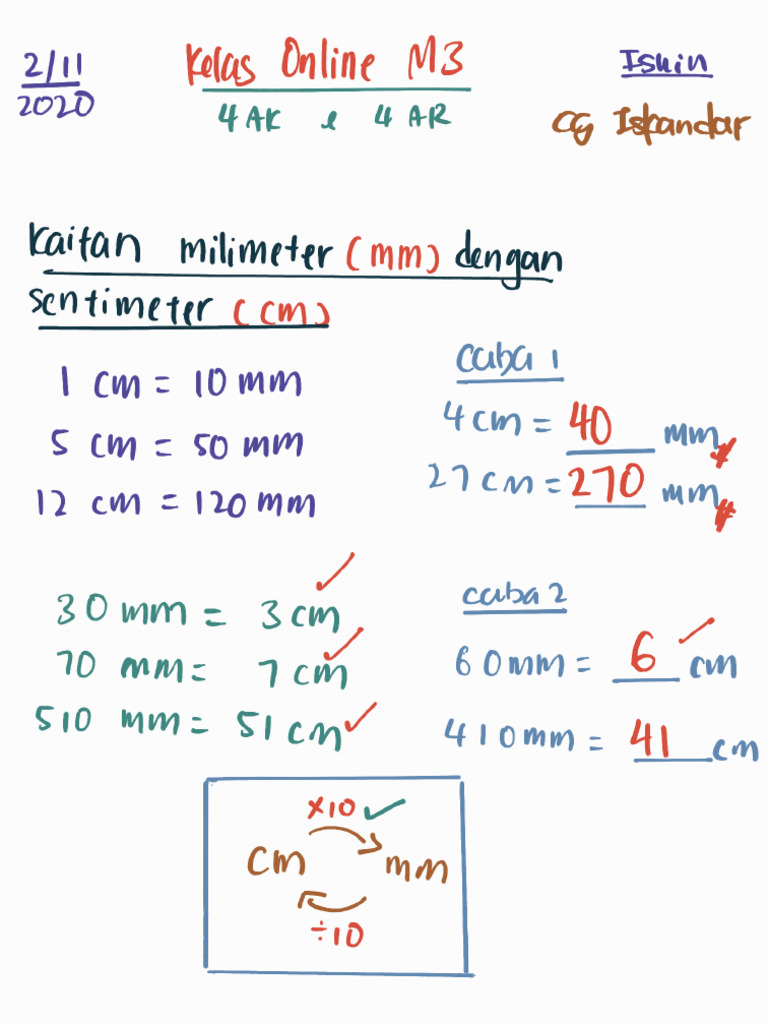 2/11
2020
Kelas Online M3
4 AK & 4 AR
Isnin
Cg Iskandar
Kaitan milimeter (mm) dengan
sentimeter (cm)
1 cm = 10 mm
5 cm = 50 mm
12 cm = 120 mm
Cuba 1
4 cm = 40 mm
27 cm = 270 mm
30 mm = 3 cm
70 mm = 7 cm
510 mm = 51 cm
cuba 2
60 mm = 6 cm
410 mm = 41 cm
×10
cm mm
÷10